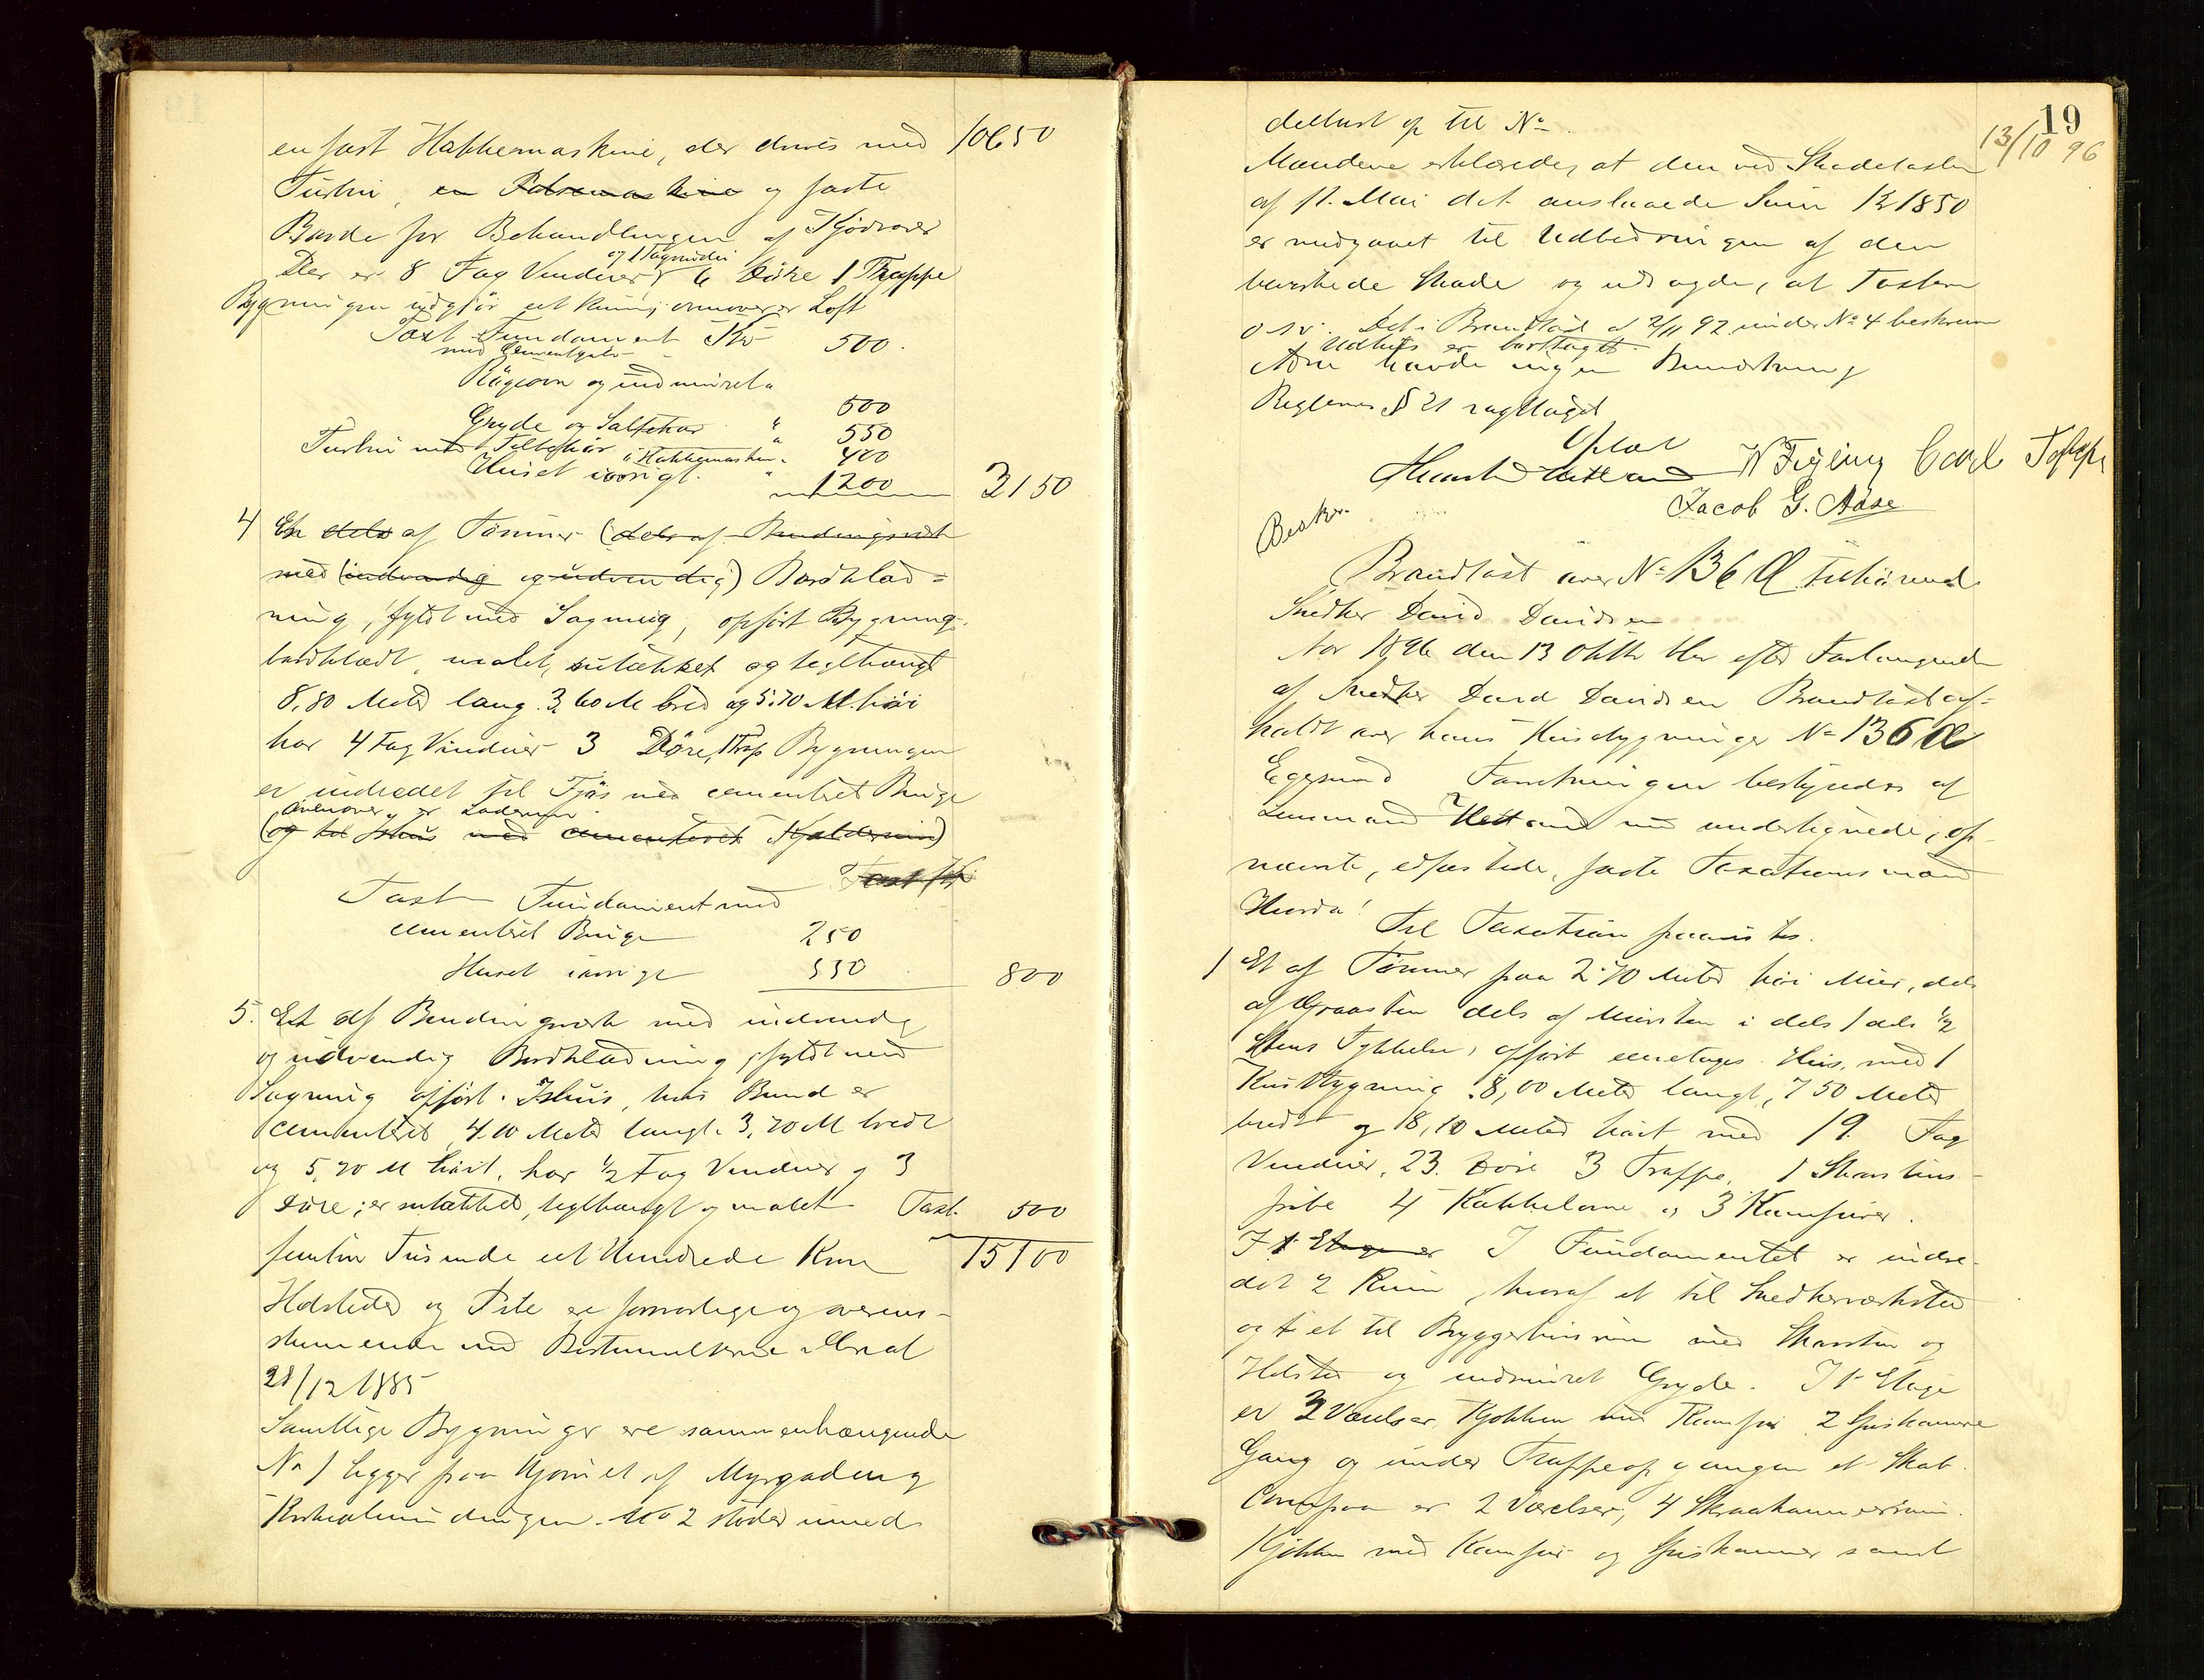 en fast Hakkemaskine, der drives med 10650
Turbin, en Pølsemaskine og faste
Borde for Behandlingen af Kjødvarer
og 1 Tagvindu
Der er 8 Fag Vinduer 6 Døre 1 Trappe
Bygningen udgjør et Rum; ovenover er Loft
Taxt Fundament Kr 500.
med Cementgulv
Røgeovn og indmuret "
Gryde og Saltekar " 500
Turbin med Tilbehør " 550
i Hakkemaskin " 400
Huset iøvrigt. " 1200 3150
4 En dels af Tømmer (dels af Bindingsverk
med (indvendig og udvendig) Bordklæd=
ning, fyldt med Sagmug, opført Bygning,
bordklædt, malet, sutækket og teglhængt
8,80 Meter lang. 3,60 M bred og 5.70 M. høi
har 4 Fag Vinduer 3 Døre, 1 Trap Bygningen
er indredet til Fjøs med cementeret Binge
ovenover er Laderum
(og til Ishus med cementeret Kjælderrum)
Taxt Kr
Taxt Fundament med
cementeret Binge 250
Huset iøvrigt 550 800
5. Et af Bindingsverk med indvendig
og udvendig Bordklædning, fyldt med
Sagmug opført. Ishus, hvis Bund er
cementeret 4.10 Meter langt. 3,70 M bredt
og 5,70 M høit, har 1/2 Fag Vinduer og 3
Døre; er sutækket, teglhængt og malet Taxt. 500
femten Tusinde et Hundrede Kroner 15100
Ildsteder og Pibe ere forsvarlige og overens-
stemmende med Bestemmelserne i Cirk af
28/12 1885
Samtlige Bygninger ere sammenhængende
No 1 ligger paa Hjørnet af Myrgaden og
No 2 støder imod
19
13/10 96
deltast op til No
Mændene erklærede, at den ved Skadetaxten
af 11. Mai det. anslaaede Sum Kr 1850
er medgaaet til Udbedringen af den
bevirkede Skade og udsagde, at Taxten
o s v. Det i Brandtaxt af 2/11 92 under No 4 beskrevne
Udhus er borttaget.
Adm havde ingen Bemærkning
Reglernes § 21 iagttaget
Oplæst
Hetland W Feyling Carl
Jacob G. Aase
Besker.
Brandtaxt over No 136 a tilhørende
Snedker David Davidsen
Aar 1896 den 13 Oktbr blev efter Forlangende
af Snedker David Davidsen Brandtaxt af-
holdt over hans Husbygninger No 136 a
Egersund Forretningen bestyredes af
Lensmand Hetland med undertegnede, op-
nævnte, edfæstede, faste Taxationsmænd
Hvorda!
Til Taxation paavistes.
1 Et af Tømmer paa 2.70 Meter høi Mur, dels
af Graasten dels af Mursten i dels 1 dels 1/2
Stens Tykkelse, opført eenetages Hus, med 1
Kvistbygning. 8,00 Meter langt, 7 50 Meter
bredt og 8,10 Meter høit med 19. Fag
Vinduer, 23. Døre 3 Trappe, 1 Skorstens-
pibe 4 Kakkelovne og 3 Komfurer.
I 1 Etage er I Fundamentet er indre-
det 2 Rum, hvoraf et til Snedkerværksted
og 1 et til Bryggerhusrum med Skorsten og
Ildsted og indmuret Gryde. I 1ste Etage
er 3 Værelser, Kjøkken med Komfur 2 Spiskamre
Gang og under Trappeopgangen et Skab.
Ovenpaa er 2 Værelser, 4 Skraakammerrum.
Kjøkken med Komfur og Spiskammer samt